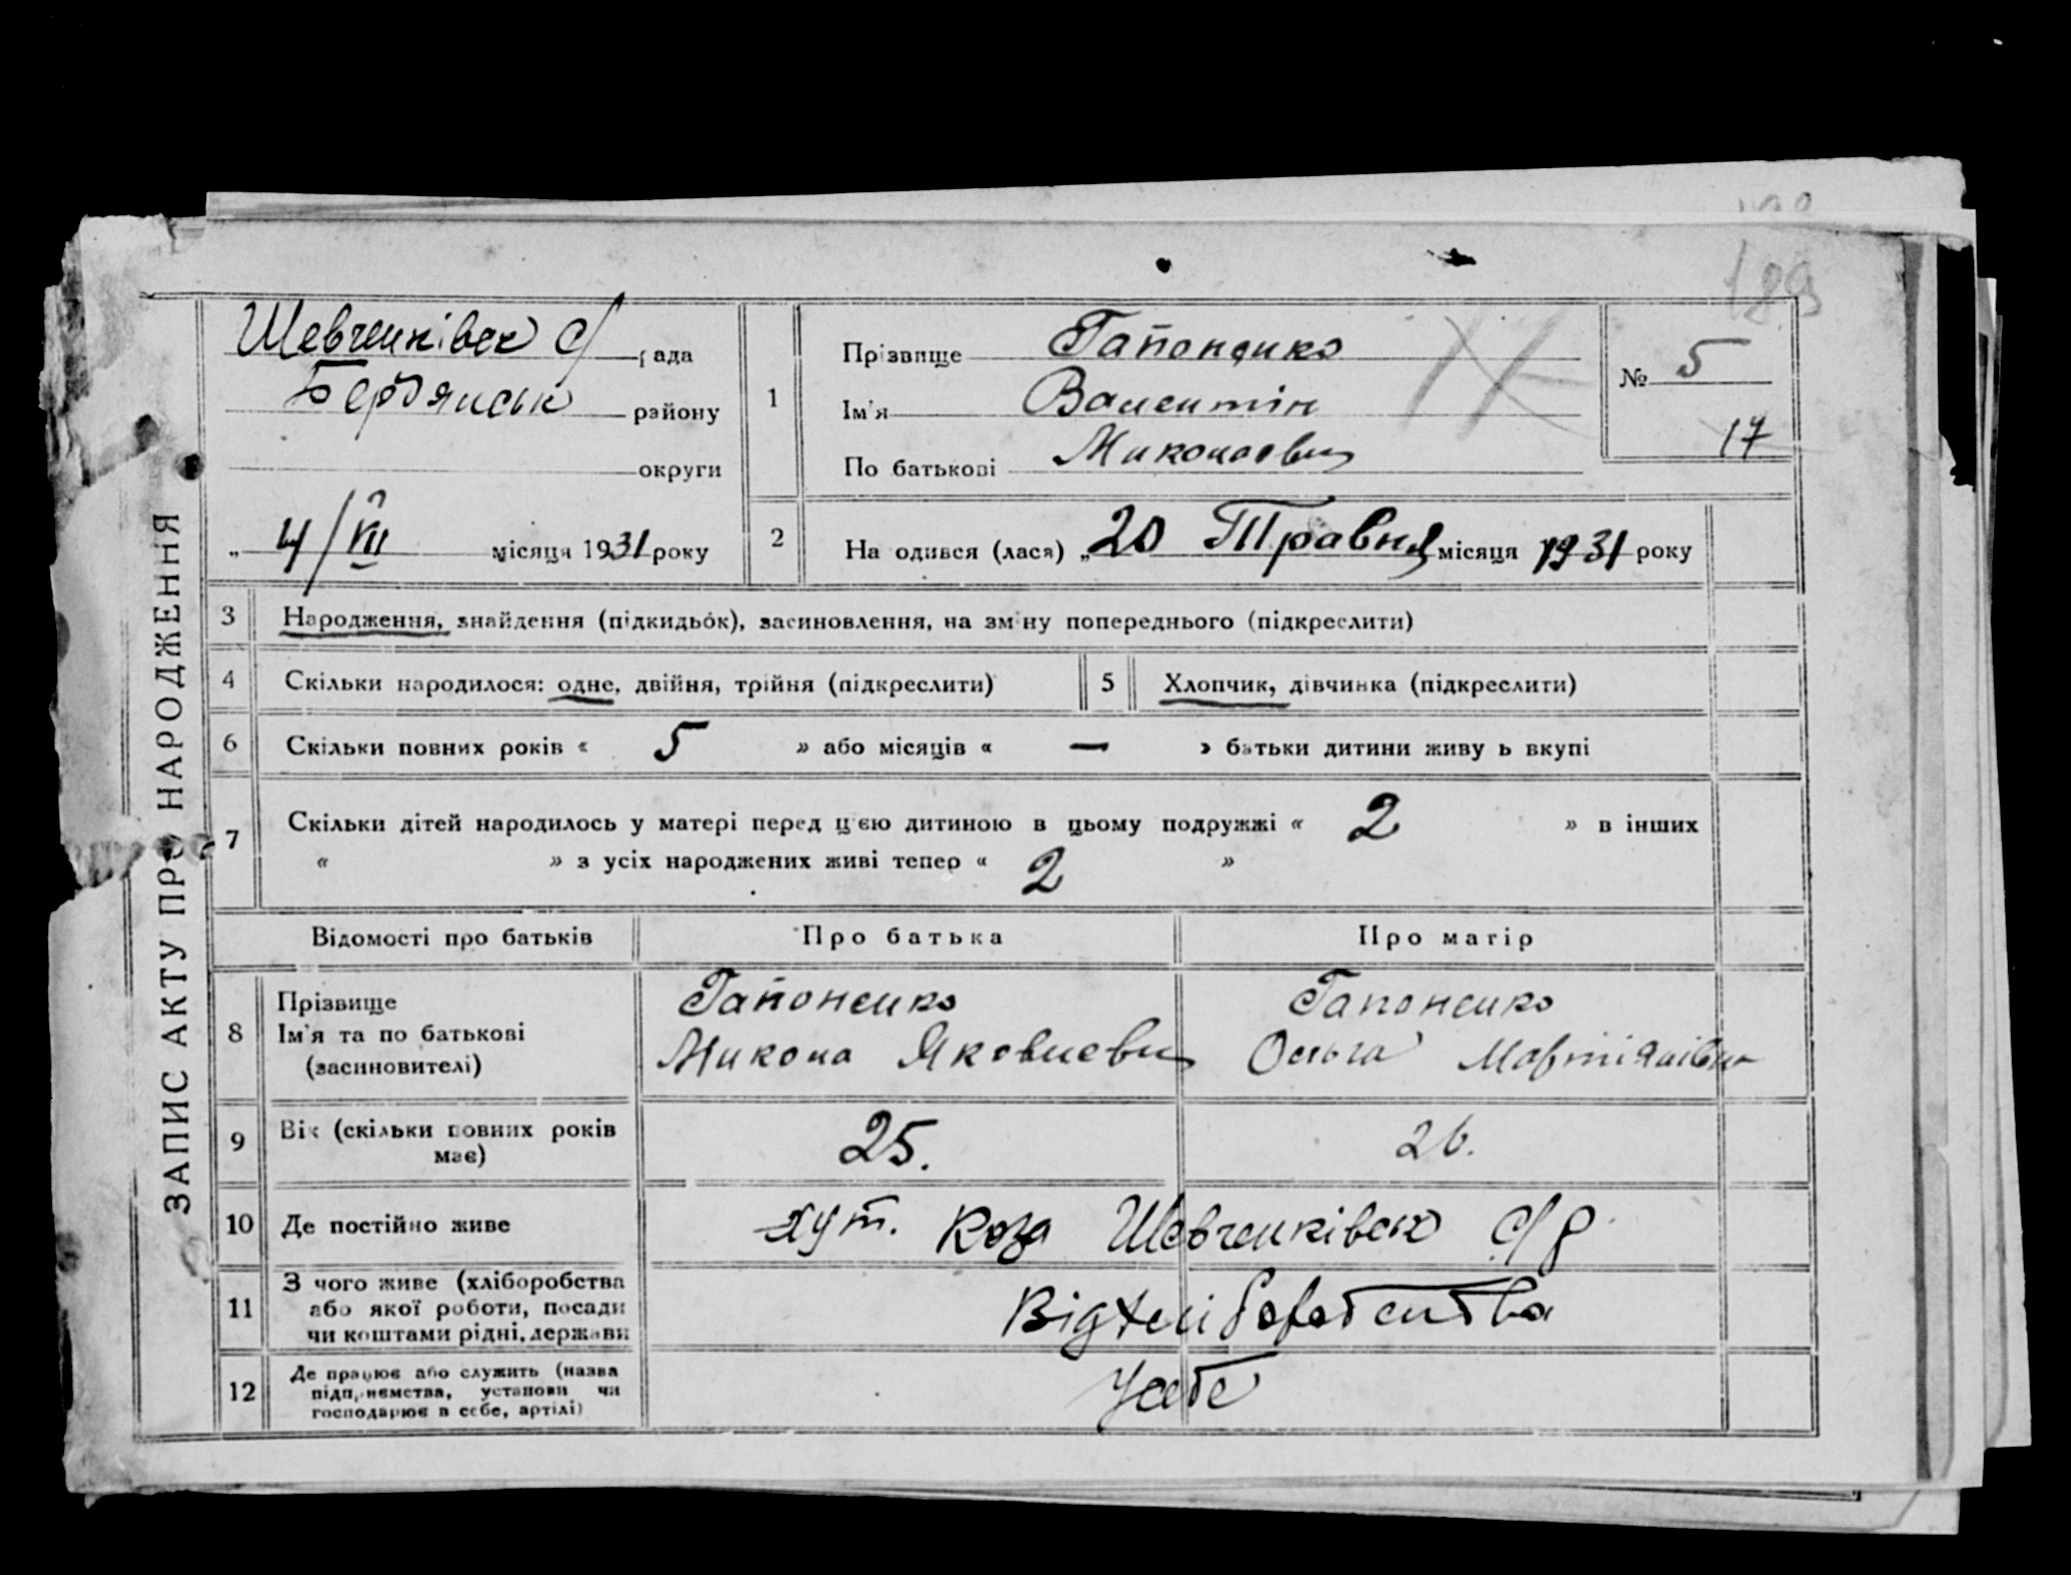 189
ЗАПИС АКТУ ПРО НАРОДЖЕННЯ
Шевченківск с/ рада
Бердянськ району
округи
„ 4/VII місяця 1931 року
1
Прізвище Гапоненко
Ім'я Валентін
По батькові Миколаевич
№ 5
17
2 На одився (лася) „ 20 Травня місяця 1931 року
3 Народження, знайдення (підкидьок), засиновлення, на зміну попереднього (підкреслити)
4 Скільки народилося: одне, двійня, трійня (підкреслити) 5 Хлопчик, дівчинка (підкреслити)
6 Скільки повних років « 5 » або місяців « — » батьки дитини живу ь вкупі
7 Скільки дітей народилось у матері перед цією дитиною в цьому подружжі « 2 » в інших
« » з усіх народжених живі тепер « 2 »
Відомості про батьків Про батька Про матір
8 Прізвище Гапоненко Гапоненко
Ім'я та по батькові Микола Яковлевич Ольга Мартіянівна
(засиновителі)
9 Вік (скільки повних років має) 25. 26.
10 Де постійно живе хут. Коза Шевченківськ с/р
11 З чого живе (хліборобства
або якої роботи, посади
чи коштами рідні, держави Від хліборобства
12 Де працює або служить (назва
підприємства, установи чи
господарює в себе, артілі) Усебе